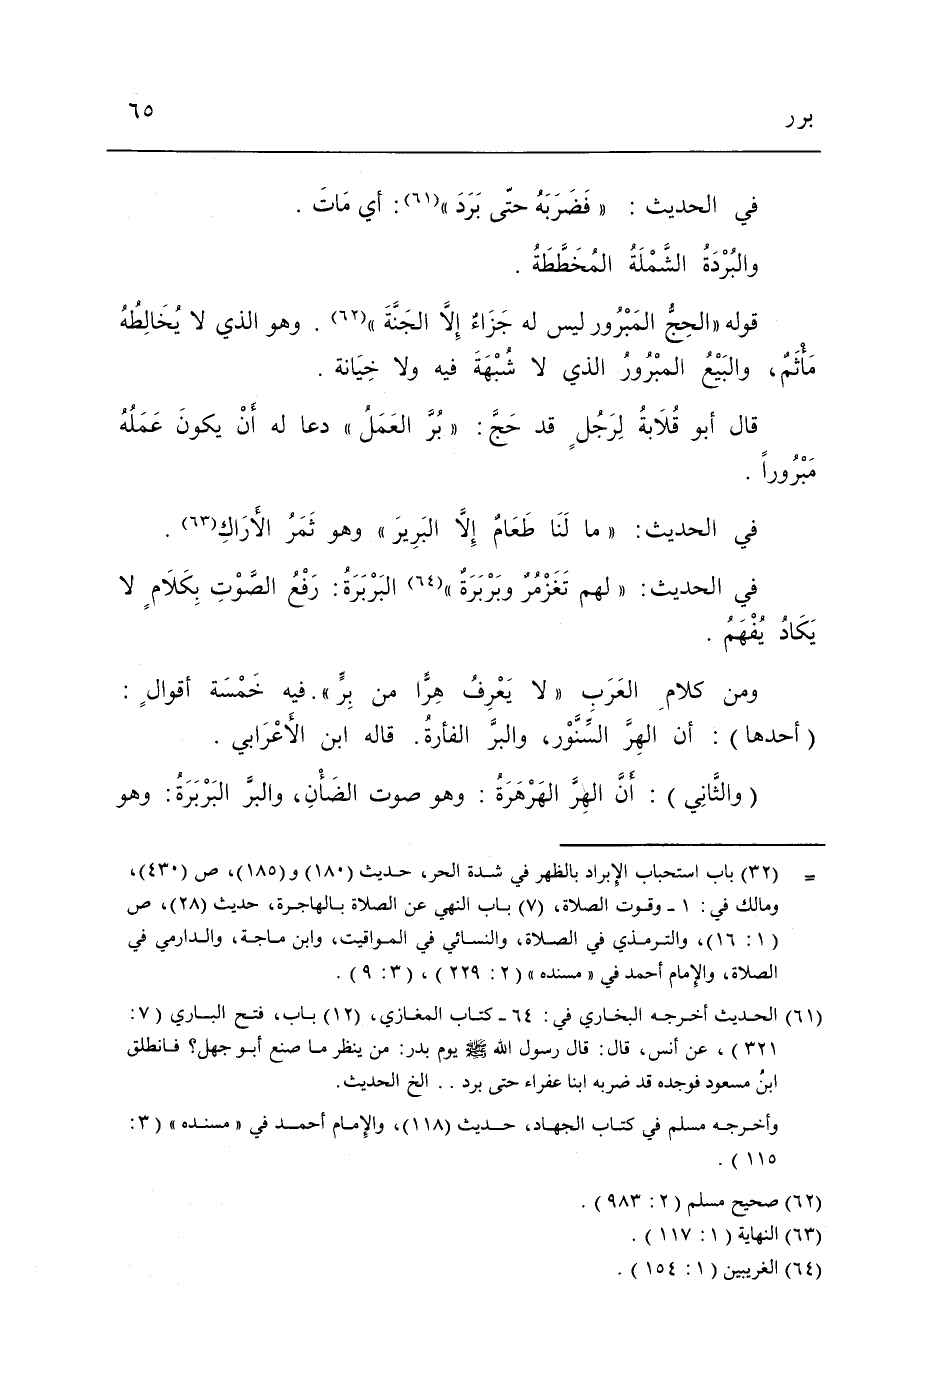 برر ٦٥
في الحديث : « فَضَرَبَهُ حتّى بَرَدَ »(٦١): أي مَاتَ .
والبُرْدَةُ الشَّمْلَةُ المُخَطَّطَةُ .
قوله «الحِجُّ المَبْرُور ليس له جَزَاءٌ إِلَّا الجَنَّةَ »(٦٢) . وهو الذي لا يُخَالِطُهُ
مَأْثَمٌ، والبَيْعُ المبْرُورُ الذي لا شُبْهَةَ فيه ولا خِيَانة .
قال أبو قُلَابةُ لِرَجُلٍ قد حَجَّ: « بُرَّ العَمَلُ » دعا له أَنْ يكونَ عَمَلُهُ
مَبْرُوراً .
في الحديث: « ما لَنَا طَعَامٌ إِلَّا البَرِيرَ » وهو ثَمَرُ الأَرَاكِ(٦٣) .
في الحديث: « لهم تَغَزْمُرٌ وبَرْبَرَةٌ »(٦٤) البَرْبَرَةُ: رَفْعُ الصَّوْتِ بِكَلَامٍ لا
يَكَادُ يُفْهَمُ .
ومن كلامِ العَرَبِ « لا يَعْرِفُ هِرًّا من بِرٍّ ». فيه خَمْسَة أقوالٍ :
( أحدها ) : أن الهِرَّ السِّنَّوْر، والبرَّ الفأرةُ. قاله ابن الأَعْرَابي .
( والثَّانِي ) : أَنَّ الهِرَّ الهَرْهَرَةُ : وهو صوت الضَأْنِ، والبرَّ البَرْبَرَةُ: وهو
= (٣٢) باب استحباب الإبراد بالظهر في شدة الحر، حديث (١٨٠) و(١٨٥)، ص (٤٣٠)،
ومالك في: ١ ـ وقوت الصلاة، (٧) باب النهي عن الصلاة بالهاجرة، حديث (٢٨)، ص
(١: ١٦)، والترمذي في الصلاة، والنسائي في المواقيت، وابن ماجة، والدارمي في
الصلاة، والإمام أحمد في « مسنده » (٢: ٢٢٩) ، (٣: ٩) .
(٦١) الحديث أخرجه البخاري في: ٦٤ ـ كتاب المغازي، (١٢) باب، فتح الباري (٧:
٣٢١) ، عن أنس، قال: قال رسول الله ﷺ يوم بدر: من ينظر ما صنع أبو جهل؟ فانطلق
ابنُ مسعود فوجده قد ضربه ابنا عفراء حتى برد . . الخ الحديث.
وأخرجه مسلم في كتاب الجهاد، حديث (١١٨)، والإمام أحمد في « مسنده » (٣:
١١٥) .
(٦٢) صحيح مسلم (٢: ٩٨٣) .
(٦٣) النهاية (١: ١١٧) .
(٦٤) الغريبين (١: ١٥٤) .